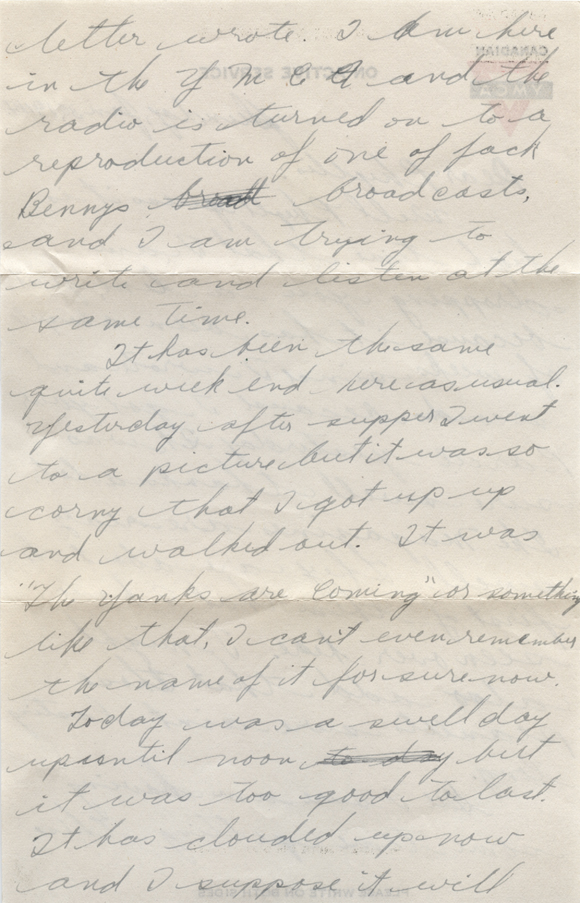 letter wrote. I am here
in the Y M C A and the
radio is turned on to a
reproduction of one of Jack
Bennys broadcasts,
and I am trying to
write and listen at the
same time.
It has been the same
quite week end here as usual.
Yesterday after supper I went
to a picture but it was so
corny that I got up up
and walked out. It was
"Th Yanks are Coming" or something
like that, I can't even remember
the name of it for sure now.
Today was a swell day
up until noon to day but
it was too good to last.
It has clouded up now
and I suppose it will
CANADIAN
YMCA
ON ACTIVE SERVICE
PLEASE WRITE ON BOTH SIDES